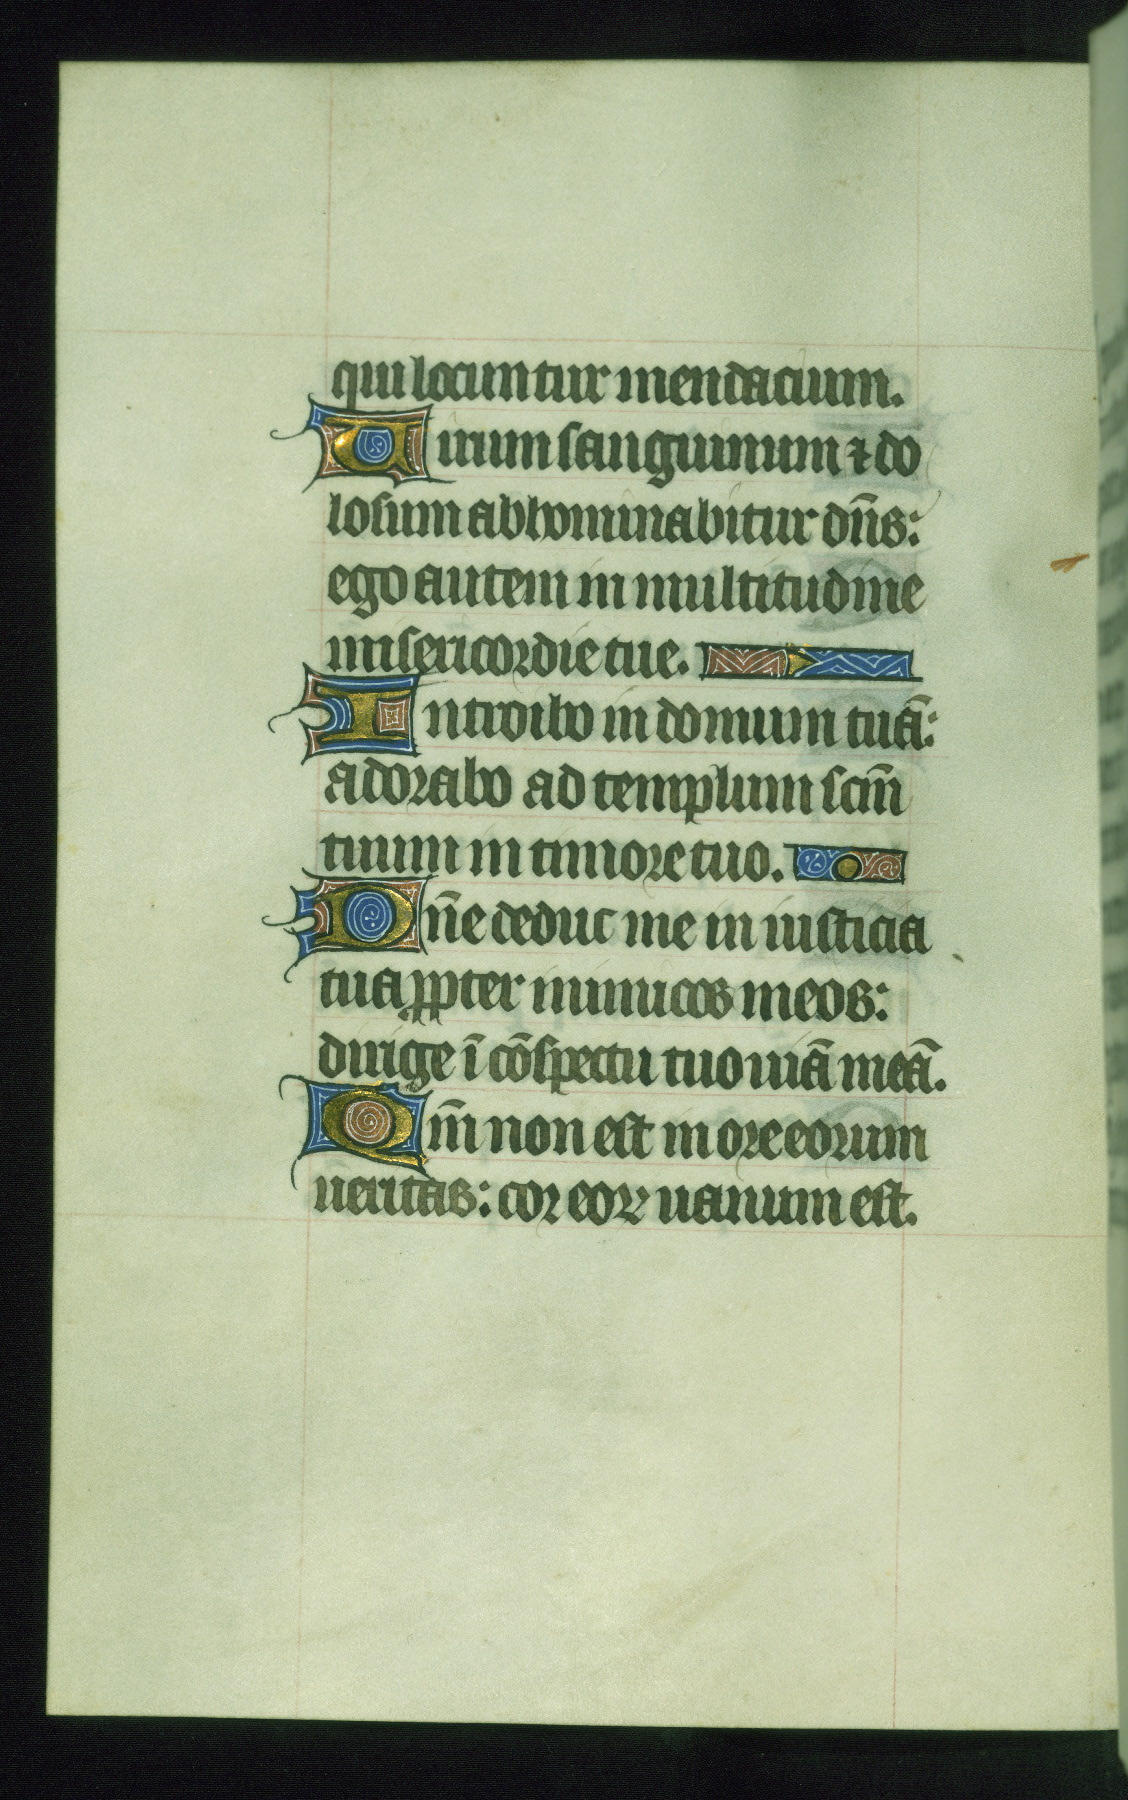 qui locuntur mendacium.
Uirum sanguinum ⁊ do
losum abhominabitur dn̄s:
ego autem in multitudine
misericordie tue.
Introibo in domum tuā:
adorabo ad templum scm̄
tuum in timore tuo.
Dn̄e deduc me in iusticia
tua ꝓpter inimicos meos:
dirige ī cōspectu tuo uiā meā.
Qm̄ non est in ore eorum
ueritas: cor eoꝝ uanum est.